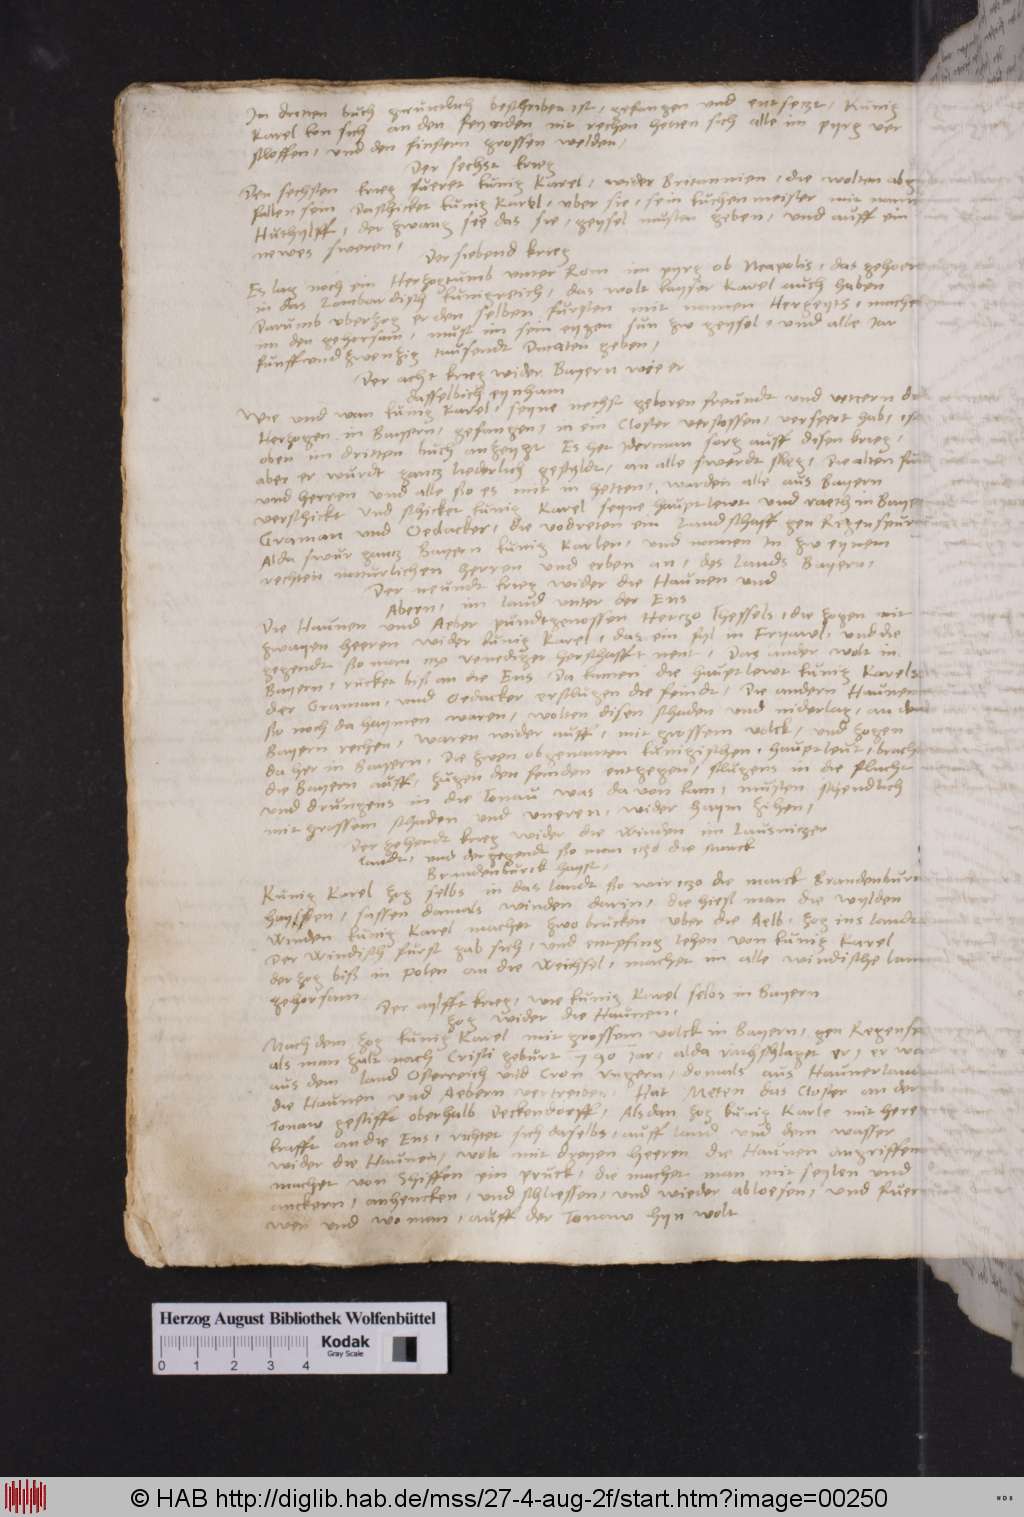 Im dritten buch gruntlich beschriben ist, gefangen und entsetzt, Künig
Karel kon sich an den feynden nit rechen hetten sich alle im pyrg ver
sloffen, und den finstern grossen welden,
Der sechst krieg
Den sechsten krieg fueret künig Karel, wider Britannien, die wolten abge
fallen sein Da schicket künig Karel, uber sie, sein kuchenmeister mit namen
Huthylff, der zwang sie das sie, geysel musten geben, und auff ein
newes sweren,
Der siebend krieg
Es lag noch ein Hertzogtumb unter Rom im pyrg ob Neapolis, das gehoert
in das Lombardisch künigreich, das wolt kayser Karel auch haben
Darumb uberzog er den selben fursten mit namen Hergeyts, machet
im den gehorsam, must im sein eygen sun zw geysel, und alle Jar
funff und zwenzig tausendt Ducaten geben,
Der acht krieg wider Bayern wie er
dasselbich eynnam
Wie und wan künig Karel, seyne nechst geboren freundt und vettern die
Herzogen in Bayern, gefangen, in ein Closter verstossen, verspert hab, ist
oben im dritten buch anzeygt Es het Jderman sorg auff disen krieg,
aber er wurdt gantz liederlich gestyldt, an alle swerdt sleg, Die alten fursten
und herren und alle so es mit in hetten, warden alle aus Bayern
verschickt Und schicket künig Karel seyne hauptlewt und raeth in Bayern
Graman und Oedacker, die vodreten ein Landschaff gen Regenspurg
Alda swur gantz Bayern künig Karlen, und namen In zw eynem
rechten naturlichen herren und erben an, des Lands Bayern,
Der neundt krieg wider die Haunen und
Abern, im land unter der Ens
Die Haunen und Aeber pundtgenossen Herczo Thessels, die zogen mit
zwayen heeren wider künig Karel, das ein fyl in Fryawl, und die
gegendt so man itz venediger herschafft nent, Das ander wolt in
Bayern, rucket biß an die Ens, Da kamen die hauptlewt künig Karels
der Graman, und Oedacker erslugen die feindt, Die andern Haunen
so noch da haymen waren, wolten disen schaden und niderlag, an den
Bayern rechen, waren wider auff, mit grossem volck, und zogen
da her in Bayern, Die zwen obgenanten künigischen, hauptleut, brachten
die Bayern auff, zugen den feinden entgegen, slugens in die flucht
und drungens in die Tonau was da von kam, musten schendlich
mit grossem schaden und uneren, wider haym zihen,
Der zehendt krieg wider die Winden im Lausnitzer
landt, und der gegendt so man itzo die marck
Brandenburck hayst,
Künig Karel zog selbs in das landt so wir itzo die marck Brandenburck
hayssen, sassen damals winden darin, die hiess man die wylden
Winden künig Karel machet zwo brucken uber die Aelb, zog ins landt
Der Windisch furst gab sich, und entpfing lehen von künig Karel
der zog biß in Polen an die Weichsel, machet im alle windische land
gehorsam
Der aylfft krieg, wie künig Karel selbs in Bayern
zog wider die Haunen,
Nach dem zog künig Karel mit grossem volck in Bayern, gen Regenspurg
als man zalt nach Cristi geburt 790 Jar, alda rathschlaget er, er wolt
aus dem land Osterreich und Cron ungern, domals aus Haunerland
die Haunen und Aebern vertreiben, Hat Meten das Closter an der
Tonaw gestifft oberhalb Deckendorff, Als dan zog künig Karle mit heres
krafft an die Ens, richtet sich daselbs, auff land und dem wasser
wider die Haunen, wolt mit dreyen heeren die Haunen angriffen
machet von Schiffen ein pruck, die machet man mit seylen und
anckern, anhencken, und schliessen, und wieder abloesen, und fueren
wen und wo man, auff der Tonaw hyn wolt
Herzog August Bibliothek Wolfenbüttel
0 1 2 3 4
Kodak
Gray Scale
© HAB http://diglib.hab.de/mss/27-4-aug-2f/start.htm?image=00250